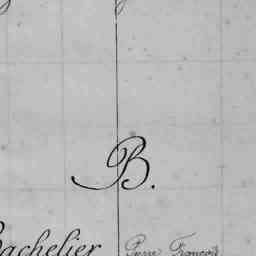 B.
Bachelier Pierre François